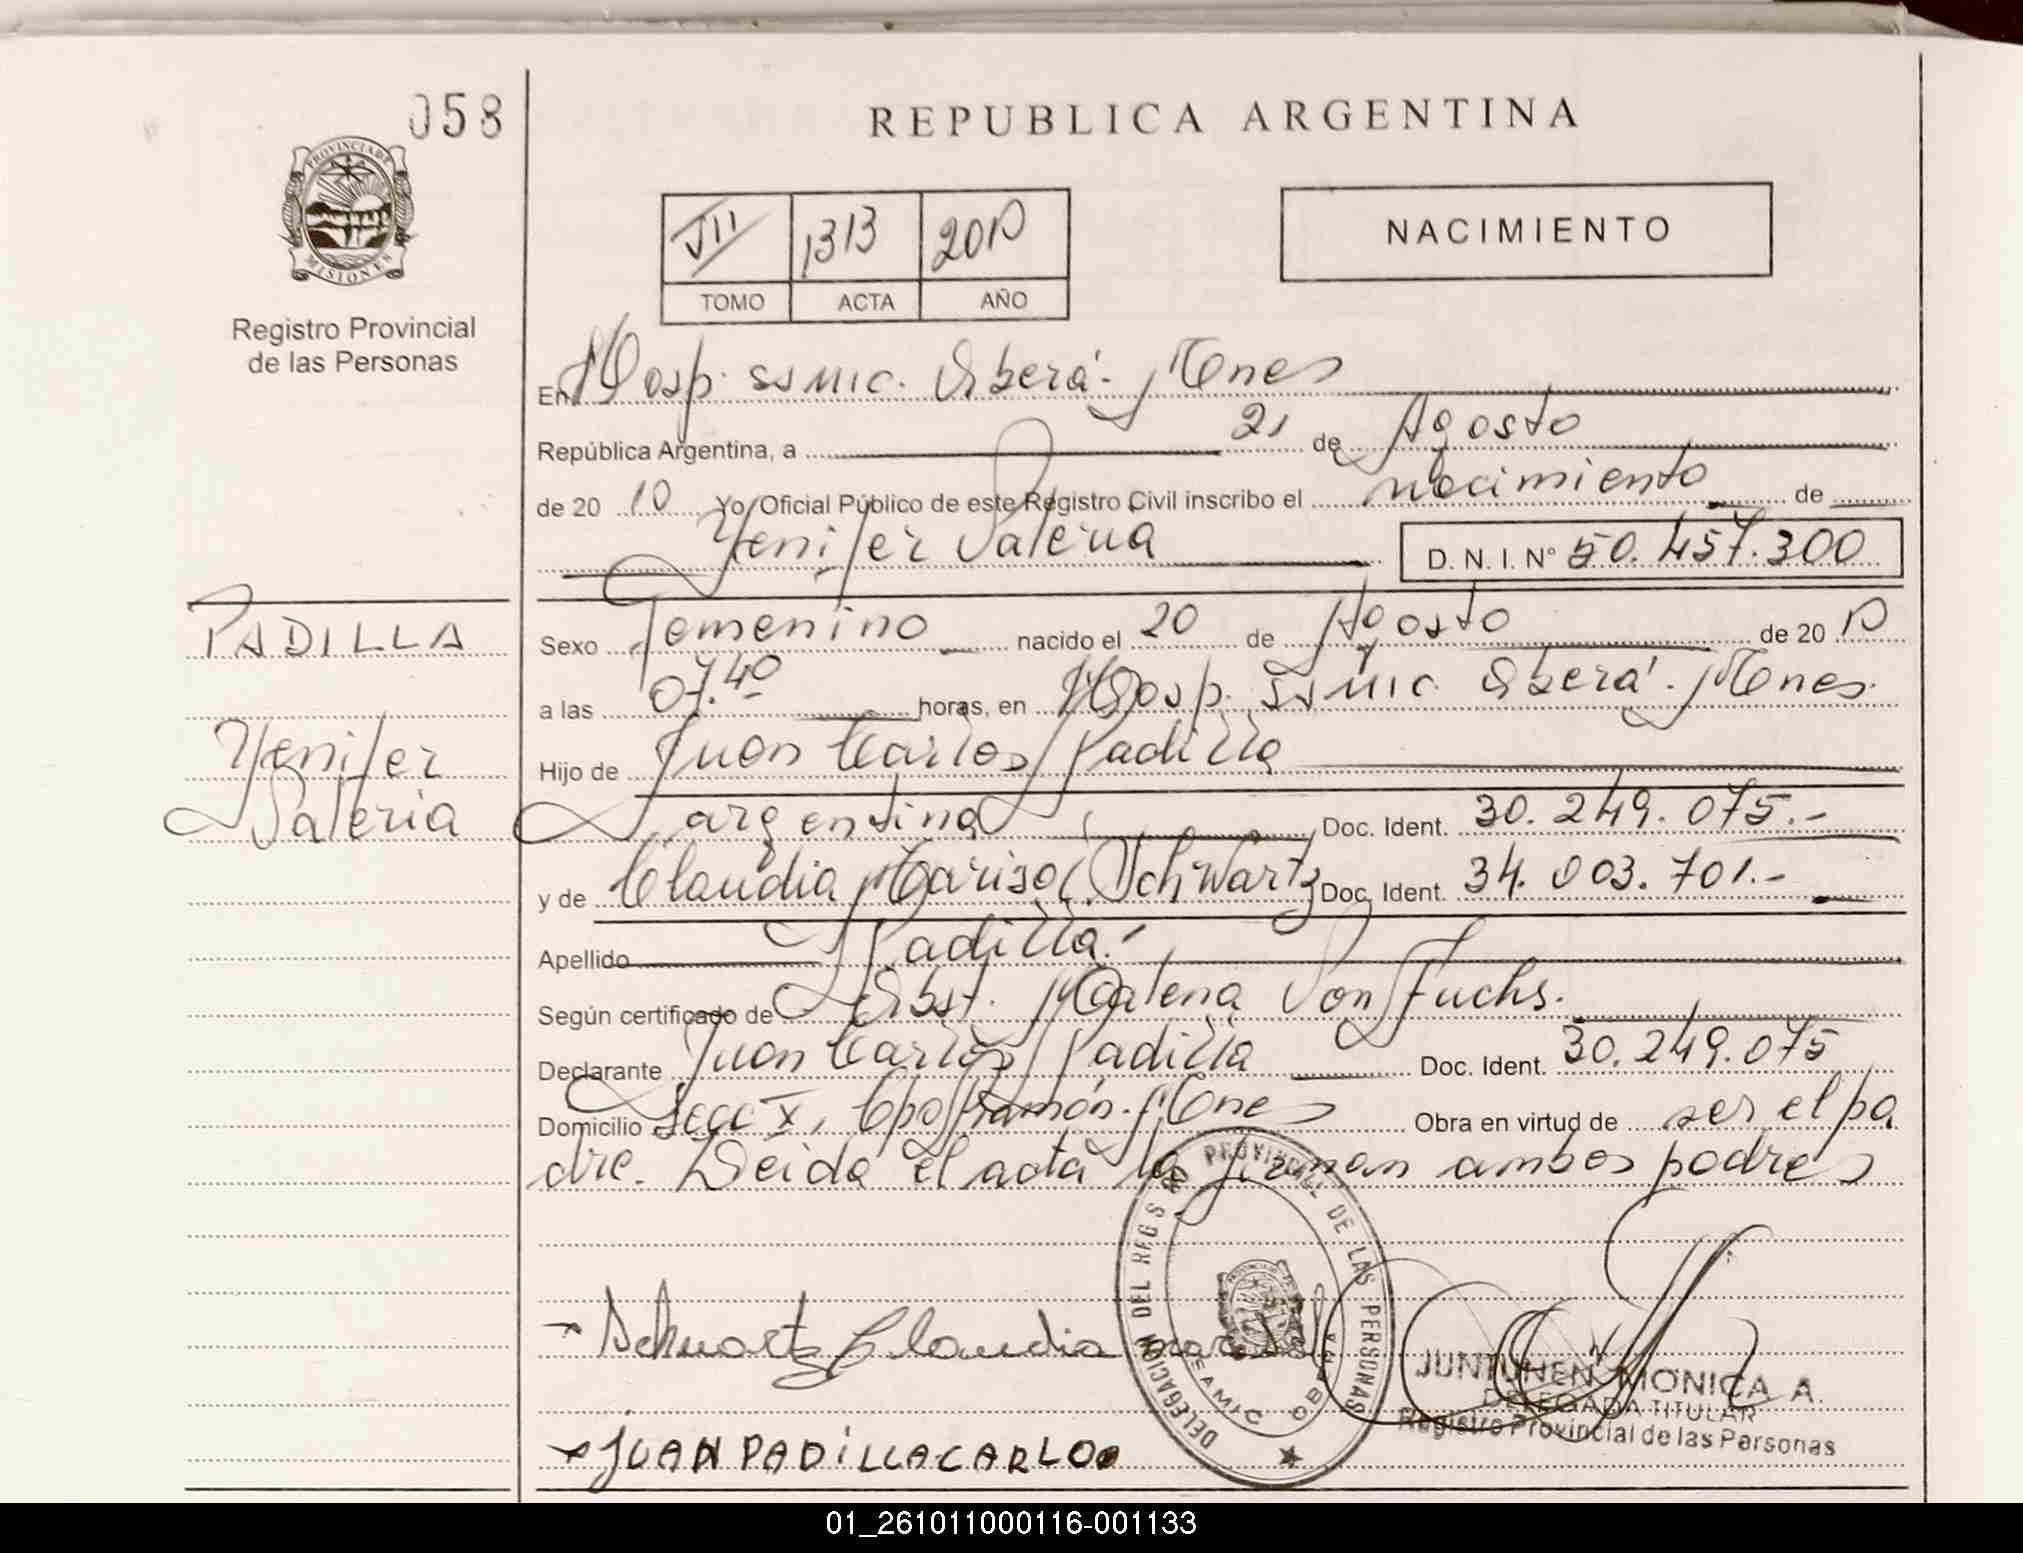 058
REPUBLICA ARGENTINA
PROVINCIA DE
MISIONES
Registro Provincial
de las Personas
VII 1313 2010
TOMO ACTA AÑO
NACIMIENTO
En Hosp. SSMIC. Oberá. Mnes
República Argentina, a 21 de Agosto
de 20 10 Yo Oficial Público de este Registro Civil inscribo el nacimiento de
Yenifer Valeria
D. N. I. Nº 50.457.300
PADILLA
Yenifer
Valeria
Sexo Femenino nacido el 20 de Agosto de 20 10
a las 07.40 horas, en Hosp. SSMIC. Oberá. Mnes.
Hijo de Juan Carlos Padilla
argentina Doc. Ident. 30.249.075.-
y de Claudia Marisol Schwartz Doc. Ident. 34.003.701.-
Apellido Padilla.
Según certificado de Obst. Malena Von Fuchs.
Declarante Juan Carlos Padilla Doc. Ident. 30.249.075
Domicilio Secc X, Cpo Ramón. Mnes Obra en virtud de ser el pa
dre. Leida el acta la firman ambos padres
DELEGACION DEL REGS PROVINCIAL DE LAS PERSONAS
SEAMIC OBERA
Schwartz Claudia marisol
JUNTUNEN MONICA A.
DELEGADA TITULAR
Registro Provincial de las Personas
JUAN PADILLA CARLOS
01_261011000116-001133